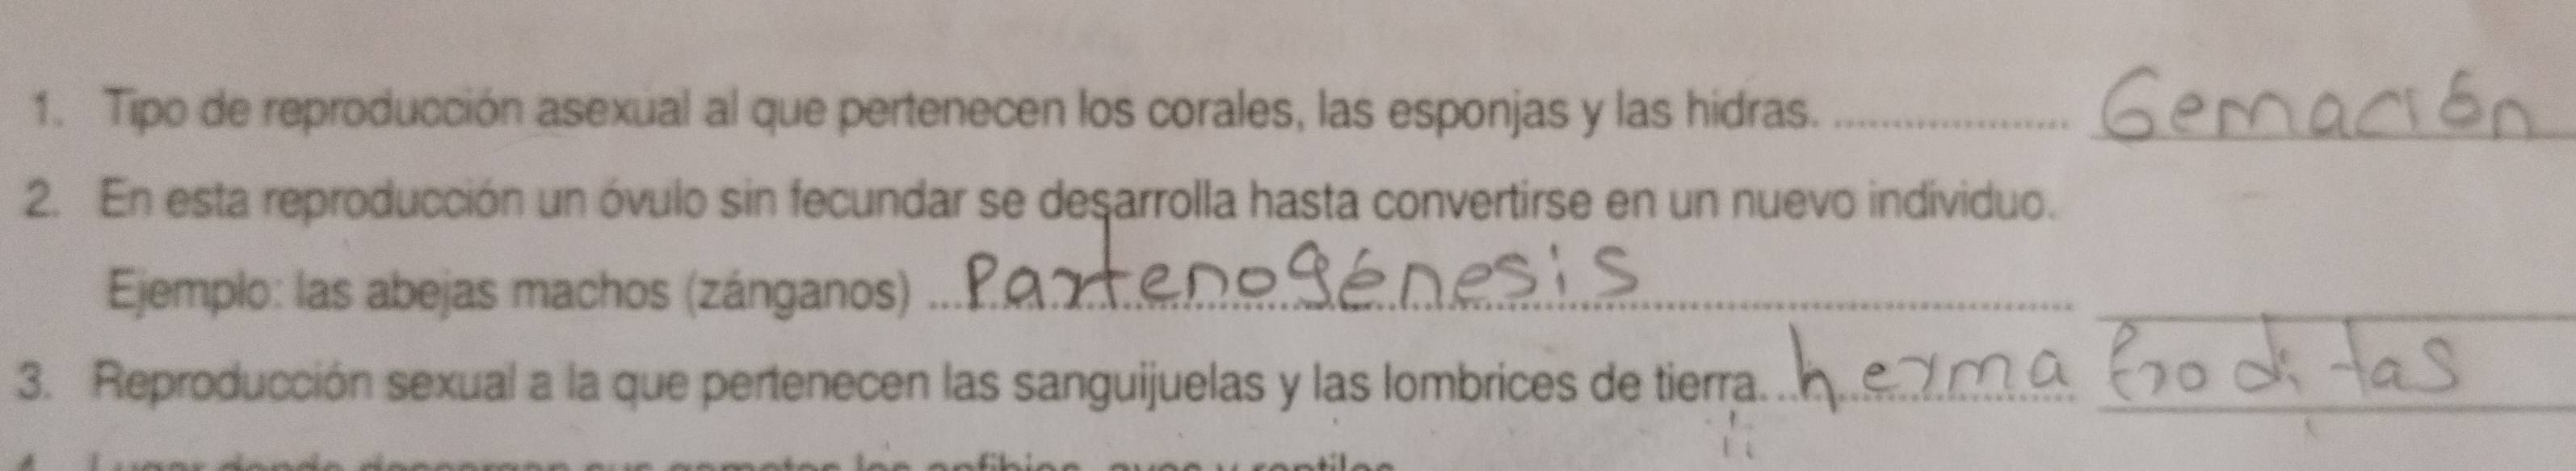 1. Tipo de reproducción asexual al que pertenecen los corales, las esponjas y las hidras. .................... Gemación
2. En esta reproducción un óvulo sin fecundar se desarrolla hasta convertirse en un nuevo individuo.
Ejemplo: las abejas machos (zánganos) ... Partenogénesis ....................
3. Reproducción sexual a la que pertenecen las sanguijuelas y las lombrices de tierra. ... hermafroditas
4. Lugar donde descargan sus gametos los anfibios, aves y reptiles